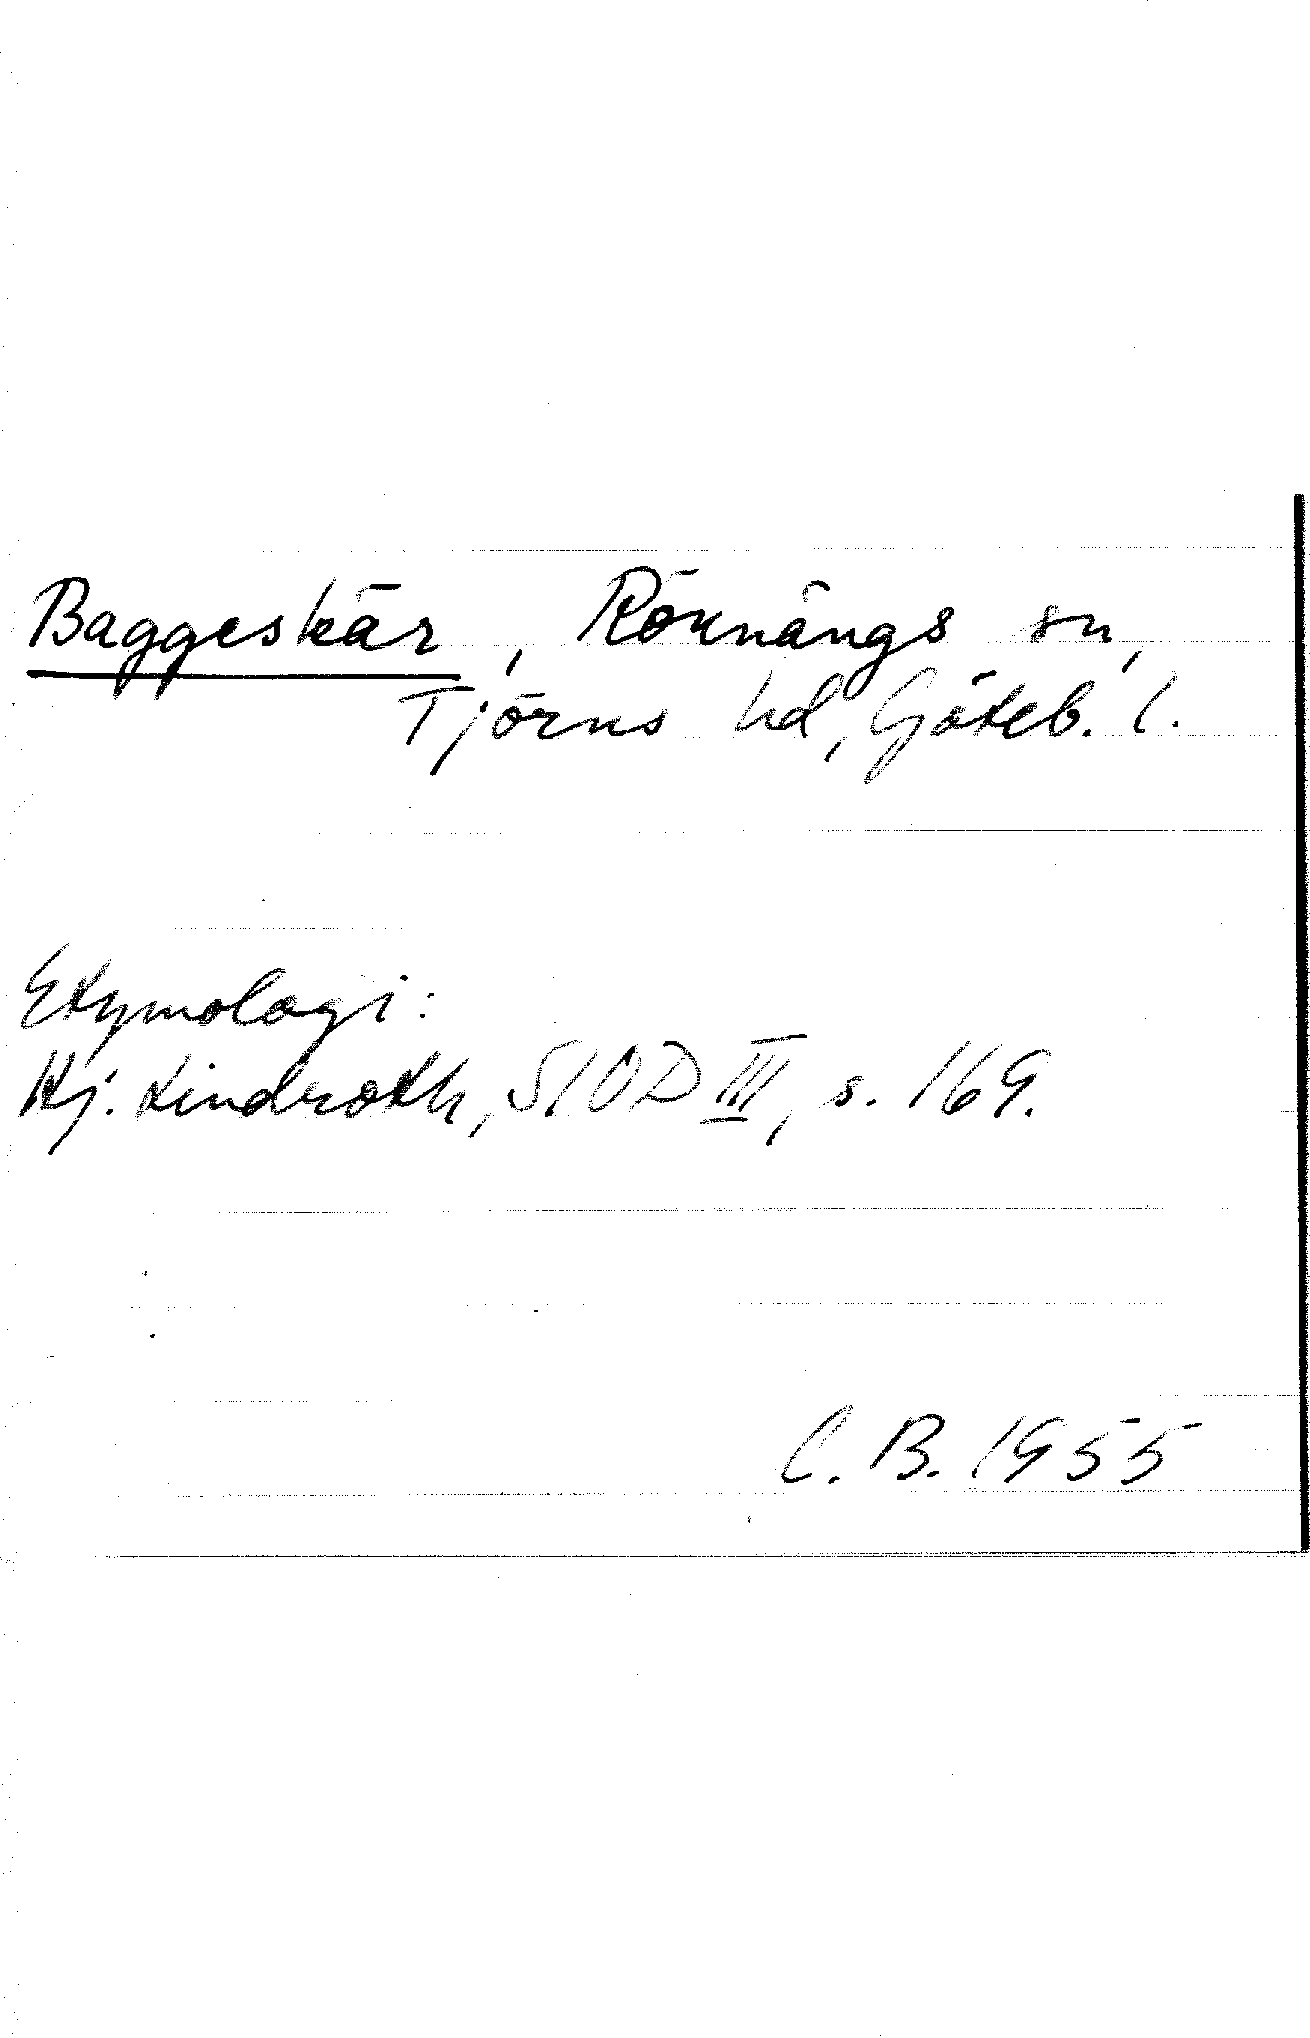 Baggeskär, Rönnängs sn,
Tjörns hd, Göteb. l.
Etymologi:
Hj. Lindroth, SIOD III, s. 169.
C. B. 1955